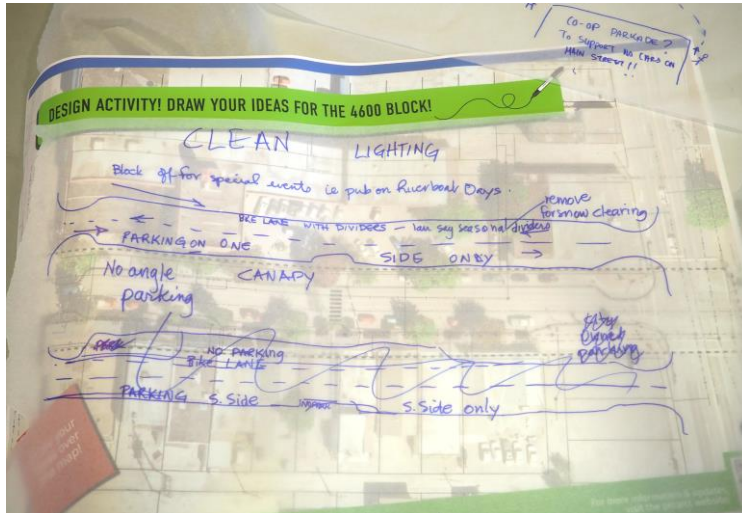 CO-OP PARKADE?
TO SUPPORT NO CARS ON
MAIN STREET!!
DESIGN ACTIVITY! DRAW YOUR IDEAS FOR THE 4600 BLOCK!
CLEAN LIGHTING
Block off for special events ie pub on Riverboat Days.
remove
for snow clearing
BKE LANE WITH DIVIDERS - say seasonal dividers
PARKING ON ONE
SIDE ONLY
No angle
parking
CANAPY
NO PARKING
parking
Bike LANE
PARKING S. Side
S. Side only
your
over
map!